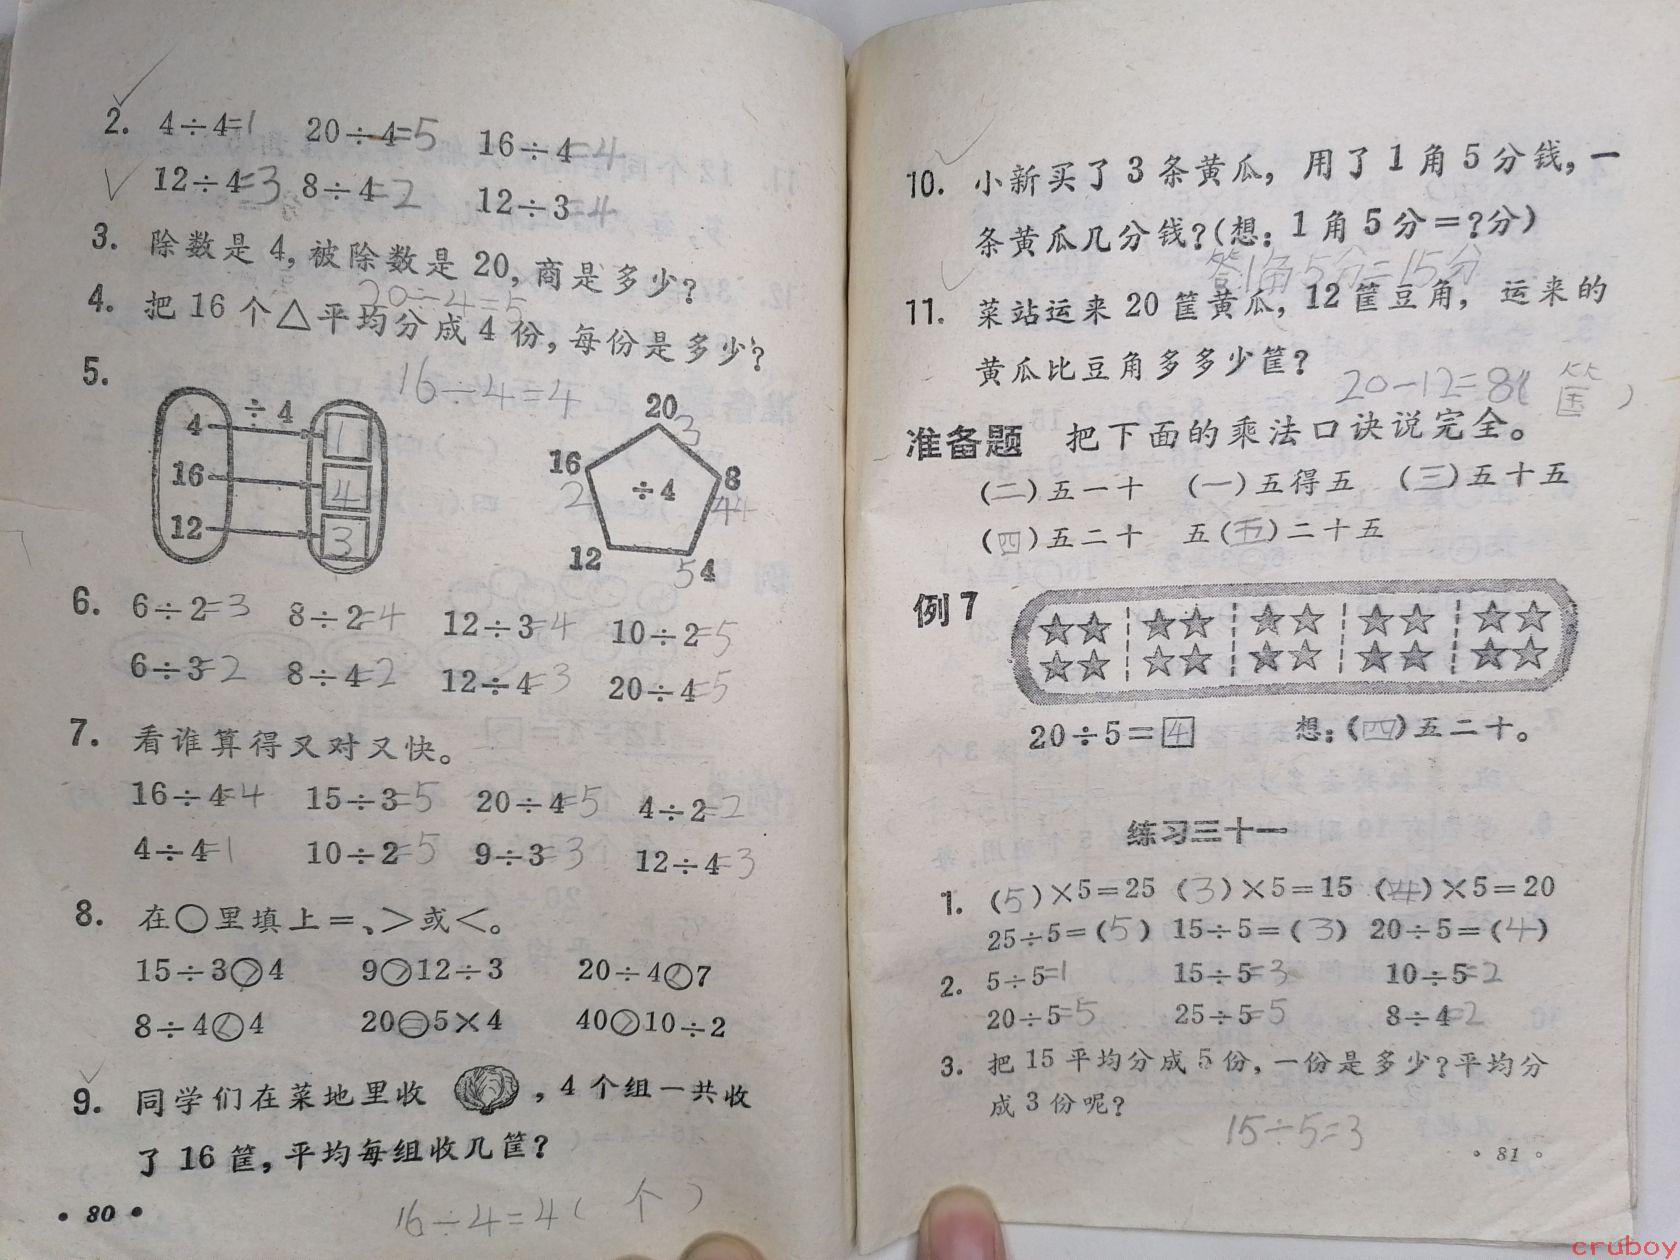 2. 4÷4=1 20÷4=5 16÷4=4
12÷4=3 8÷4=2 12÷3=4
3. 除数是 4,被除数是 20,商是多少?
20÷4=5
4. 把 16 个△平均分成 4 份,每份是多少?
16÷4=4
5.
÷4
4 1
16 4
12 3
20 3
16 ÷4 8
2 4
12 5 4
6. 6÷2=3 8÷2=4 12÷3=4 10÷2=5
6÷3=2 8÷4=2 12÷4=3 20÷4=5
7. 看谁算得又对又快。
16÷4=4 15÷3=5 20÷4=5 4÷2=2
4÷4=1 10÷2=5 9÷3=3 12÷4=3
8. 在○里填上=、>或<。
15÷3>4 9>12÷3 20÷4<7
8÷4<4 20=5×4 40>10÷2
9. 同学们在菜地里收 ,4 个组一共收
了 16 筐,平均每组收几筐?
16÷4=4(个)
• 80 •
10. 小新买了 3 条黄瓜, 用了 1 角 5 分钱,一
条黄瓜几分钱?(想:1 角 5 分=?分)
答1角5分=15分
11. 菜站运来 20 筐黄瓜, 12 筐豆角, 运来的
黄瓜比豆角多多少筐?
20-12=8(筐)
准备题 把下面的乘法口诀说完全。
(二)五一十 (一)五得五 (三)五十五
(四)五二十 五(五)二十五
例 7
20÷5=4 想:(四)五二十。
练习三十一
1. (5)×5=25 (3)×5=15 (4)×5=20
25÷5=(5) 15÷5=(3) 20÷5=(4)
2. 5÷5=1 15÷5=3 10÷5=2
20÷5=5 25÷5=5 8÷4=2
3. 把 15 平均分成 5 份,一份是多少?平均分
成 3 份呢?
15÷5=3
• 81 •
cruboy